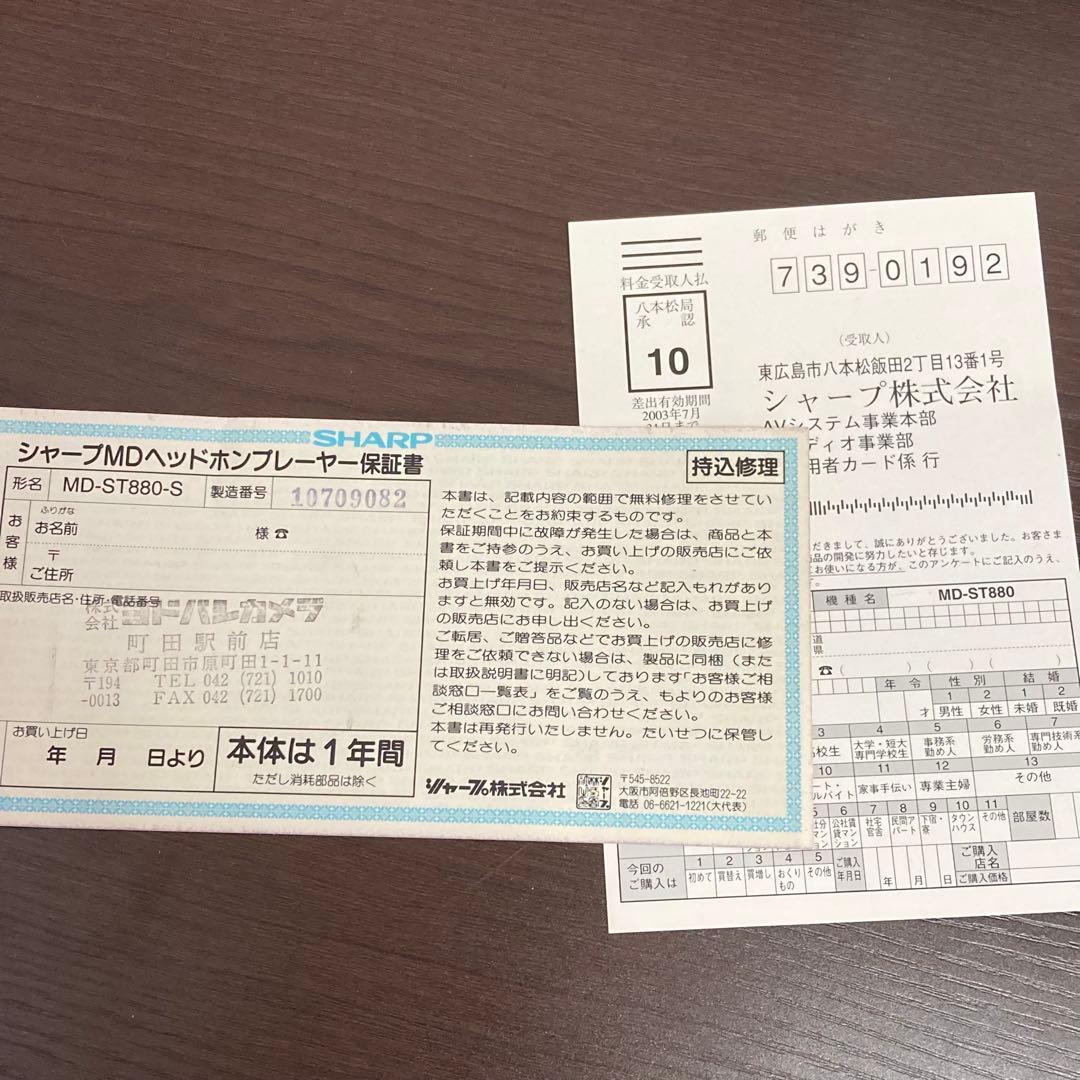 SHARP
シャープMDヘッドホンプレーヤー保証書
持込修理
形名 MD-ST880-S 製造番号 10709082
お客様
ふりがな
お名前 様 ☎
〒
ご住所
取扱販売店名・住所・電話番号
株式会社 ヨドバシカメラ
町田駅前店
東京都町田市原町田1-1-11
〒194-0013
TEL 042 (721) 1010
FAX 042 (721) 1700
お買い上げ日
年 月 日より
本体は1年間
ただし消耗部品は除く
本書は、記載内容の範囲で無料修理をさせてい
ただくことをお約束するものです。
保証期間中に故障が発生した場合は、商品と本
書をご持参のうえ、お買い上げの販売店にご依
頼し本書をご提示ください。
お買上げ年月日、販売店名など記入もれがあり
ますと無効です。記入のない場合は、お買上げ
の販売店にお申し出ください。
ご転居、ご贈答品などでお買上げの販売店に修
理をご依頼できない場合は、製品に同梱(また
は取扱説明書に明記)しております「お客様ご相
談窓口一覧表」をご覧のうえ、もよりのお客様
ご相談窓口にお問い合わせください。
本書は再発行いたしません。たいせつに保管し
てください。
シャープ株式会社
〒545-8522
大阪市阿倍野区長池町22-22
電話 06-6621-1221(大代表)
郵便はがき
739-0192
料金受取人払
八本松局
承認
10
差出有効期間
2003年7月
31日まで
(受取人)
東広島市八本松飯田2丁目13番1号
シャープ株式会社
AVシステム事業本部
ディオ事業部
用者カード係 行
だきまして、誠にありがとうございました。お客さま
品の開発に努力したいと存じます。
お使いになる方が、このアンケートにご記入のうえ、
機種名 MD-ST880
道
県
☎ ( ) ( ) ( )
年令 性別 結婚
才 1 男性 2 女性 1 未婚 2 既婚
3 4 5 6 7
高校生 大学・短大専門学校生 事務系勤め人 労務系勤め人 専門技術系勤め人
10 11 12 13
ート・ルバイト 家事手伝い 専業主婦 その他
5 6 7 8 9 10 11
公社賃貸マンション 社宅官舎 民間アパート 下宿・寮 タウンハウス その他 部屋数
今回のご購入は
1 2 3 4 5
初めて 買替え 買増し おくりもの その他
ご購入年月日 年 月 日
ご購入店名
ご購入価格